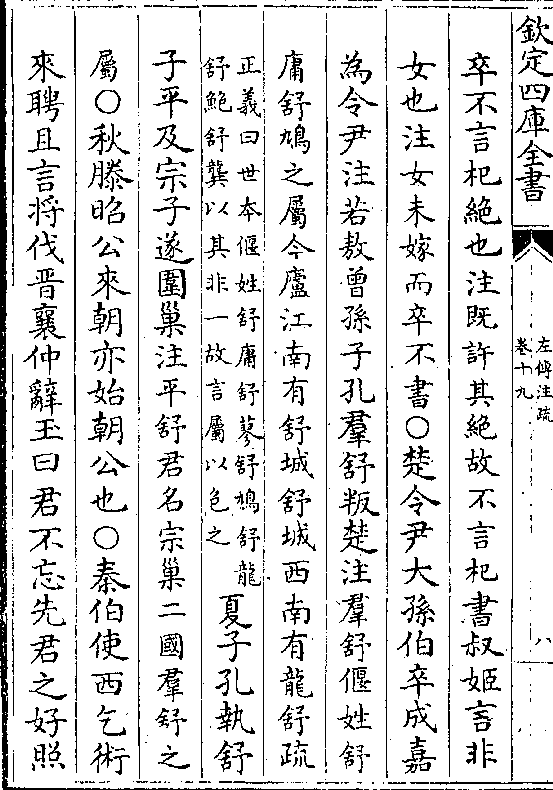 欽定四庫全書
左傳注疏
卷十九
八
卒不言杞絶也注既許其絶故不言杞書叔姬言非
女也注女未嫁而卒不書○楚令尹大孫伯卒成嘉
為令尹注若敖曾孫子孔羣舒叛楚注羣舒偃姓舒
庸舒鳩之屬今廬江南有舒城舒城西南有龍舒疏
正義曰世本偃姓舒庸舒蓼舒鳩舒龍
舒鮑舒龔以其非一故言屬以包之
夏子孔執舒
子平及宗子遂圍巢注平舒君名宗巢二國羣舒之
屬○秋滕昭公來朝亦始朝公也○秦伯使西乞術
來聘且言将伐晋襄仲辭玉曰君不忘先君之好照